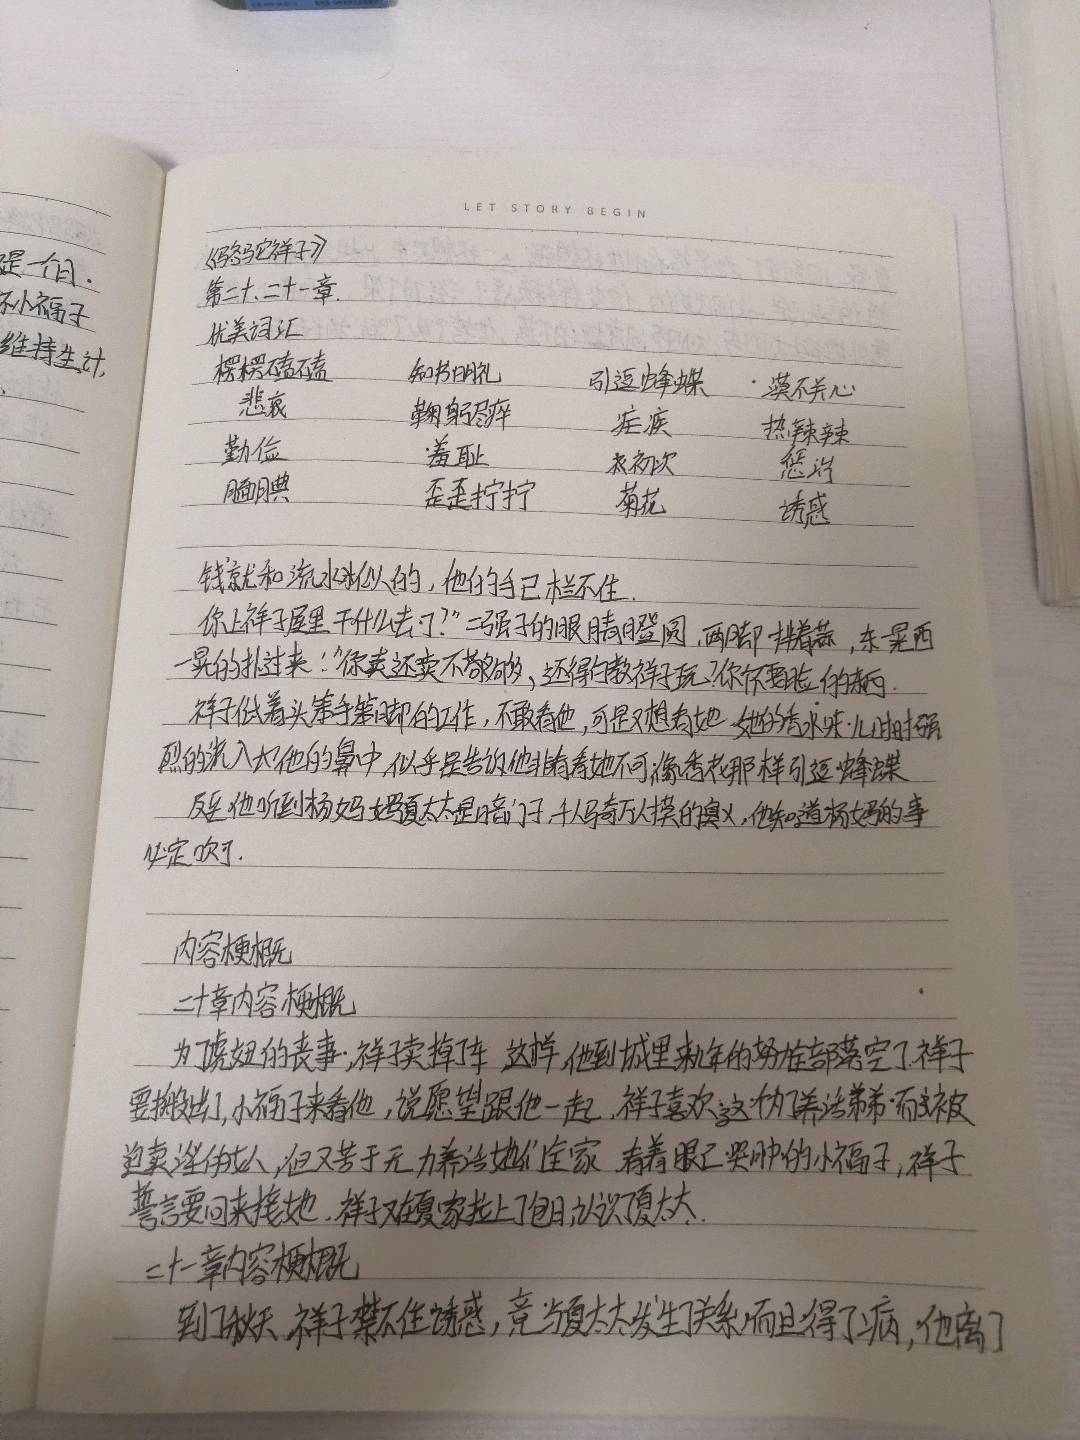 LET STORY BEGIN
是一个日.
怀小福子
维持生计,
《骆驼祥子》
第二十、二十一章.
优美词汇
楞楞磕磕 知书明礼 引逗蜂蝶 漠不关心
悲哀 鞠躬尽瘁 疟疾 热辣辣
勤俭 羞耻 衣初次
腼腆 歪歪拧拧 菊花 诱惑
钱就和流水似的,他的手已栏不住.
你上祥子屋里干什么去了?"二强子的眼睛瞪圆,两脚拌着蒜,东一晃西
一晃的扑过来:"你卖还卖不够,还得白教祥子玩?你不要脸的东西.
祥子低着头笨手笨脚的工作,不敢看他,可是又想看她,她的香水味儿时时强
烈的流入了他的鼻中,似乎是告诉他非看看她不可,像香花那样引逗蜂蝶
反至他听到杨妈骂夏太太是暗门子,千人骑万人摸的臭货,他知道杨妈的事
必定吹了.
内容梗概
二十章内容梗概
为了虎妞的丧事,祥子卖掉了车 这样,他到城里来几年的努力全部落空了.祥子
要搬出了,小福子来看他,说愿望跟他一起,祥子喜欢这为了养活弟弟而被
迫卖淫的女人,但又苦于无力养活她们全家 看着眼已哭肿的小福子,祥子
誓言要回来接她.祥子又在夏家拉上了包月,认识了夏太太.
二十一章内容梗概
到了秋天,祥子禁不住诱惑,竟与夏太太发生了关系,而且得了病,他离了